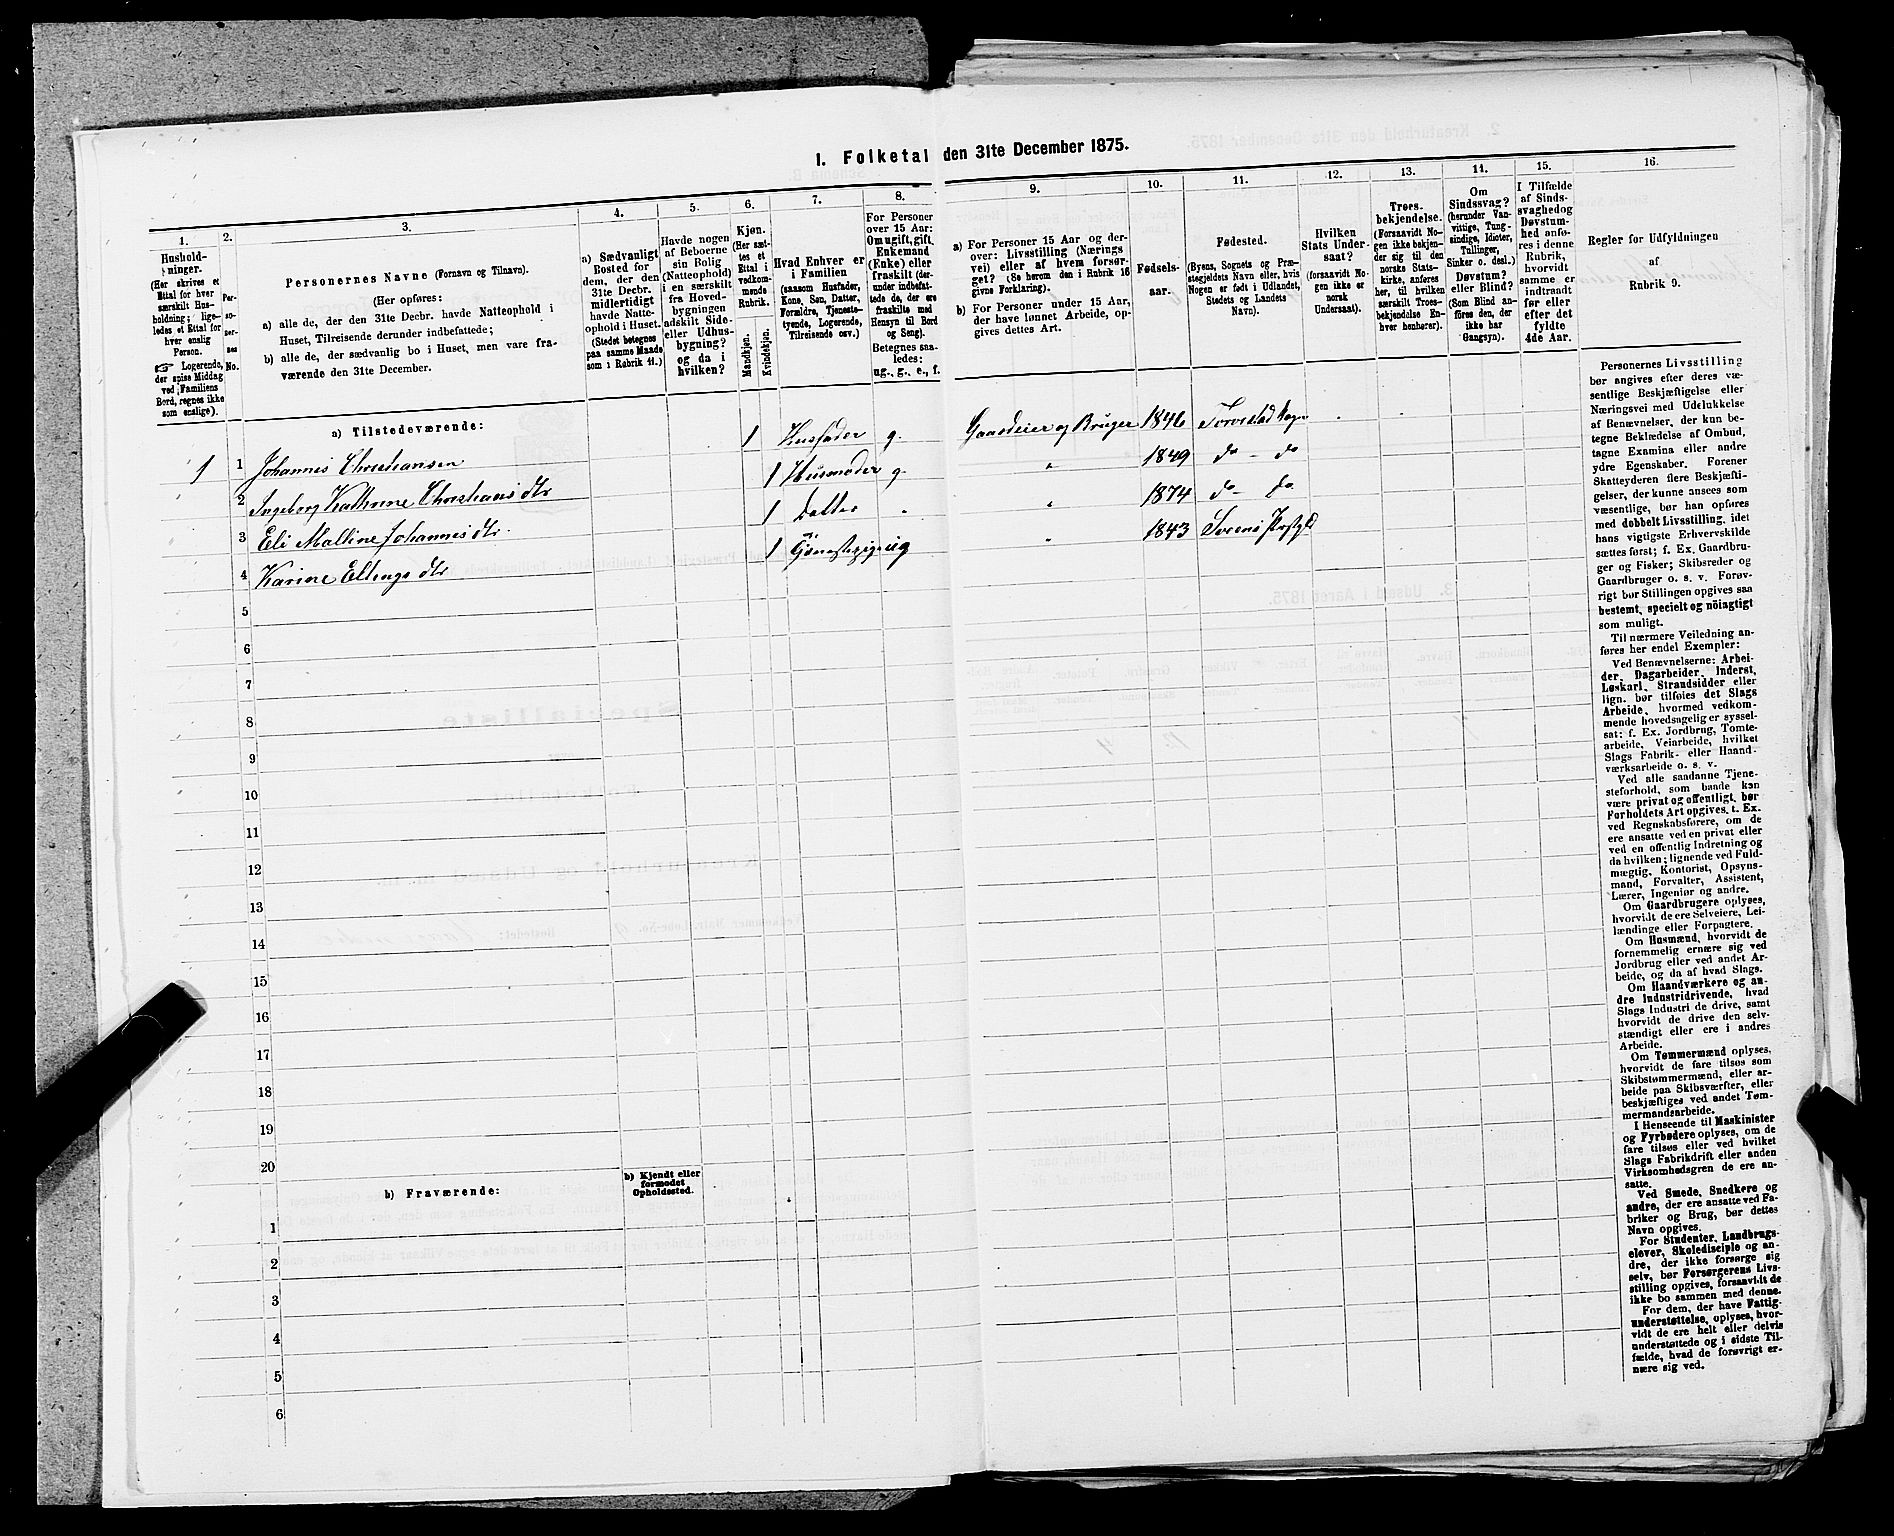 1. Folketal den 31te December 1875.
1.
Hushold-
ninger.
(Her skrives et
Ettal for hver
særskilt Hus-
holdning; lige-
ledes et Ettal for
hver enslig
Person.
☞ Logerende,
der spise Middag
ved Familiens
Bord, regnes ikke
som enslige).
2.
Per-
so-
ner-
nes
No.
3.
Personernes Navne (Fornavn og Tilnavn).
(Her opføres:
a) alle de, der den 31te Decbr. havde Natteophold i
Huset, Tilreisende derunder indbefattede;
b) alle de, der sædvanlig bo i Huset, men vare fra-
værende den 31te December.
4.
a) Sædvanligt
Bosted for
dem, der den
31te Decbr.
midlertidigt
havde Natte-
ophold i Huset.
(Stedet betegnes
paa samme Maade
som i Rubrik 11.)
5.
Havde nogen
af Beboerne
sin Bolig
(Natteophold)
i en særskilt
fra Hoved-
bygningen
adskilt Side-
eller Udhus-
bygning?
og da i
hvilken?
6.
Kjøn.
(Her sæt-
tes et
Ettal i
vedkom-
mende
Rubrik.
Mandkjøn.
Kvindekjøn.
7.
Hvad Enhver er
i Familien
(saasom Husfader,
Kone, Søn, Datter,
Forældre, Tjeneste-
tyende, Logerende,
Tilreisende osv.)
8.
For Personer
over 15 Aar:
Om ugift, gift,
Enkemand
(Enke) eller
fraskilt (der-
under indbefat-
tede de, der ere
fraskilte med
Hensyn til Bord
og Seng).
Betegnes saa-
ledes:
ug., g., e., f.
9.
a) For Personer 15 Aar og der-
over: Livsstilling (Nærings
vei) eller af hvem forsør-
get? (Se herom den i Rubrik 16
givne Forklaring).
b) For Personer under 15 Aar,
der have lønnet Arbeide, op-
gives dettes Art.
10.
Fødsels-
aar.
11.
Fødested.
(Byens, Sognets og Præ-
stegjeldets Navn eller, hvis
Nogen er født i Udlandet,
Stedets og Landets
Navn).
12.
Hvilken
Stats Under-
saat?
(forsaavidt No-
gen ikke er
norsk
Undersaat).
13.
Troes-
bekjendelse.
(Forsaavidt No-
gen ikke bekjen-
der sig til den
norske Stats-
kirke, anføres
her, til hvilken
særskilt Troes-
bekjendelse En-
hver henhører).
14.
Om
Sindssvag?
(herunder Van-
vittige, Tung-
sindige, Idioter,
Tullinger,
Sinker o. desl.)
Døvstum?
eller Blind?
(Som Blind an-
føres den, der
ikke har
Gangsyn).
15.
I Tilfælde
af Sinds-
svaghed og
Døvstum-
hed anfø-
res i denne
Rubrik,
hvorvidt
samme er
indtraadt
før eller
efter det
fyldte
4de Aar.
16.
Regler for Udfyldningen
af
Rubrik 9.
a) Tilstedeværende:
1 1 Johannis Christiansen 1 Husfader g. Gaardeier og Bruger 1846 Torvestad Sogn
2 Ingeborg Kathrine Christians dtr 1 Husmoder g. " 1849 do - do
3 Eli Malline Johannis dtr 1 Datter " " 1874 do - do
4 Karine Ellings dtr 1 Tjenestepige ug " 1843
5
6
7
8
9
10
11
12
13
14
15
16
17
18
19
20
b) Fraværende:
b) Kjendt eller
formodet
Opholdssted.
1
2
3
4
5
6
Personernes Livsstilling
bør angives efter deres væ-
sentlige Beskjæftigelse eller
Næringsvei med Udelukkelse
af Benævnelser, der kun be-
tegne Beklædelse af Ombud,
tagne Examina eller andre
ydre Egenskaber. Forener
Skatteyderen flere Beskjæfti-
gelser, der kunne ansees som
væsentlige, bør han opføres
med dobbelt Livsstilling, idet
hans vigtigste Erhvervskilde
sættes først; f. Ex. Gaardbru-
ger og Fisker; Skibsreder og
Gaardbruger o. s. v. Forøv-
rigt bør Stillingen opgives saa
bestemt, specielt og nöiagtigt
som muligt.
Til nærmere Veiledning an-
føres her endel Exempler:
Ved Benævnelserne: Arbei-
der, Dagarbeider, Inderst,
Løskarl, Strandsidder eller
lign. bør tilføies det Slags
Arbeide, hvormed vedkom-
mende hovedsagelig er syssel-
sat: f. Ex. Jordbrug, Tomte-
arbeide, Veiarbeide, hvilket
Slags Fabrik- eller Haand-
værksarbeide o. s. v.
Ved alle saadanne Tjene-
steforhold, som baade kan
være privat og offentligt, bør
Forholdets Art opgives, t. Ex.
ved Regnskabsførere, om de
ere ansatte ved en privat eller
ved en offentlig Indretning og
da hvilken; lignende ved Fuld-
mægtig, Kontorist, Opsyns-
mand, Forvalter, Assistent,
Lærer, Ingeniør og andre.
Om Gaardbrugere oplyses,
hvorvidt de ere Selveiere, Lei-
lændinge eller Forpagtere.
Om Husmænd, hvorvidt de
fornemmelig ernære sig ved
Jordbrug eller ved andet Ar-
beide, og da af hvad Slags.
Om Haandværkere og an-
dre Industridrivende, hvad
Slags Industri de drive, samt
hvorvidt de drive den selv-
stændigt eller ere i andres
Arbeide.
Om Tømmermænd oplyses,
hvorvidt de fare tilsøs som
Skibstømmermænd, eller ar-
beide paa Skibsværfter, eller
beskjæftiges ved andet Tøm-
mermandsarbeide.
I Henseende til Maskinister
og Fyrbødere oplyses, om de
fare tilsøs eller ved hvilket
Slags Fabrikdrift eller anden
Virksomhedsgren de ere an-
satte.
Ved Smede, Snedkere og
andre, der ere ansatte ved Fa-
briker og Brug, bør dettes
Navn opgives.
For Studenter, Landbrugs-
elever, Skoledisciple og an-
dre, der ikke forsørge sig
selv, bør Forsørgerens Livs-
stilling opgives, forsaavidt de
ikke bo sammen med denne.
For dem, der have Fattig-
understøttelse, oplyses, hvor-
vidt de ere helt eller delvis
understøttede og i sidste Til-
fælde, hvad de forøvrigt er-
nære sig ved.